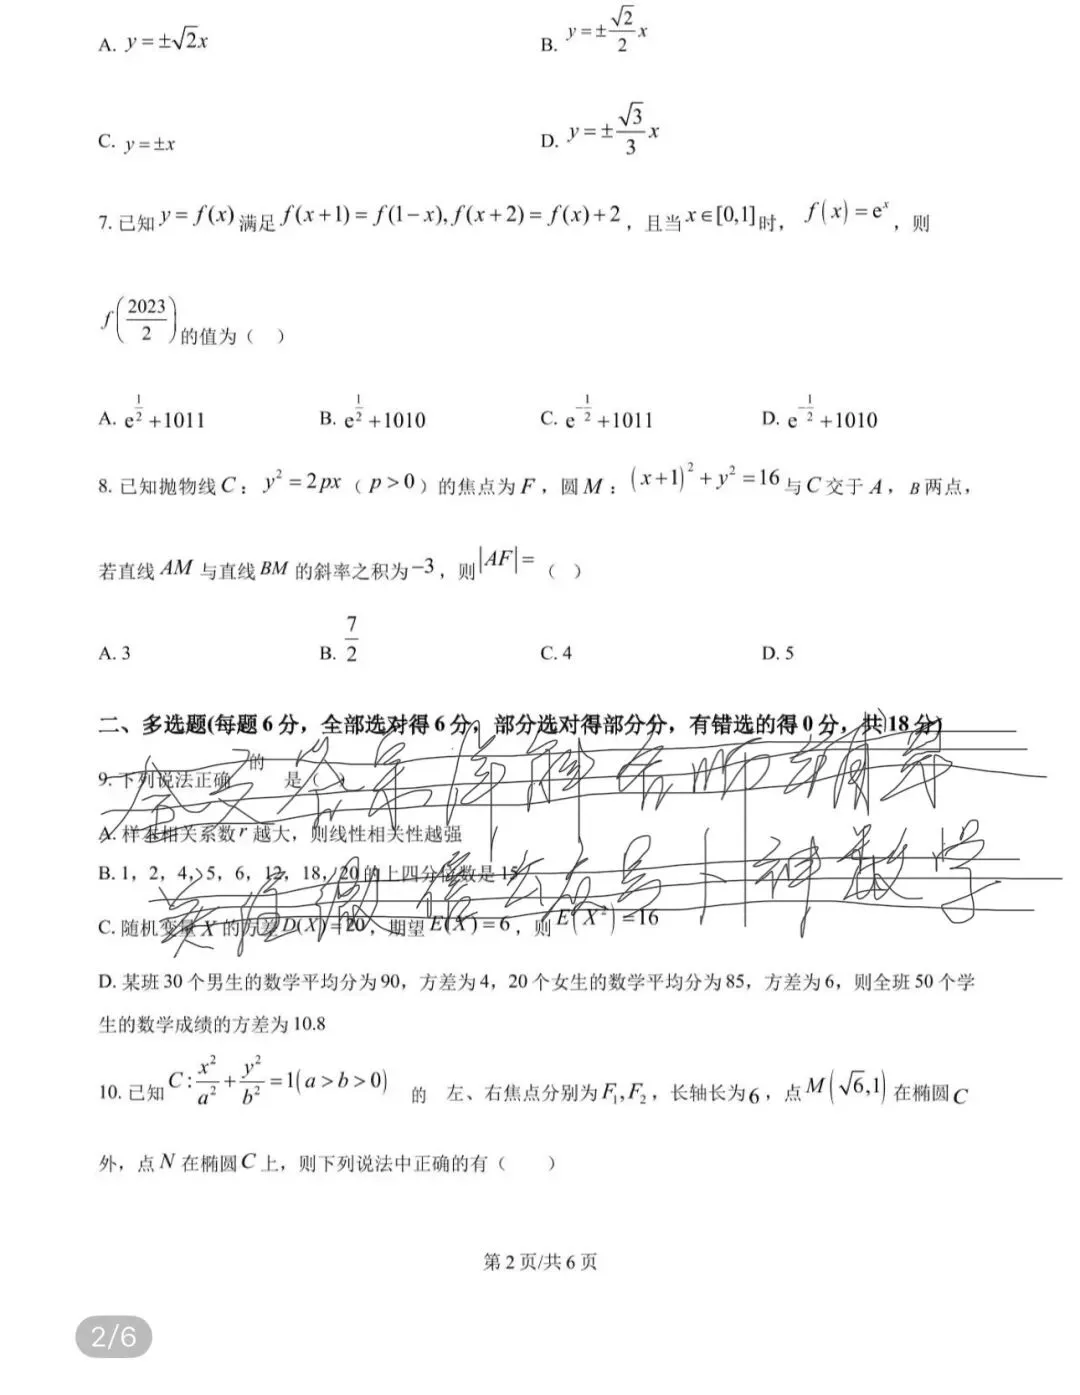 A. y = ±√2x
B. y = ±√2/2 x
C. y = ±x
D. y = ±√3/3 x
7. 已知 y = f(x) 满足 f(x+1) = f(1−x), f(x+2) = f(x)+2，且当 x∈[0,1]时， f(x) = eˣ，则
f(2023/2)的值为（ ）
A. e^(1/2) +1011
B. e^(1/2) +1010
C. e^(−1/2) +1011
D. e^(−1/2) +1010
8. 已知抛物线 C： y² = 2px（ p > 0 ）的焦点为 F，圆 M： (x+1)² + y² = 16 与 C 交于 A， B 两点，
若直线 AM 与直线 BM 的斜率之积为 −3，则 |AF| = （ ）
A. 3
B. 7/2
C. 4
D. 5
二、多选题(每题 6 分，全部选对得 6 分，部分选对得部分分，有错选的得 0 分，共 18 分)
9. 下列说法正确的是（ ）
A. 样本相关系数 r 越大，则线性相关性越强
B. 1，2，4，5，6，12，18，20 的上四分位数是 15
C. 随机变量 X 的方差 D(X) = 20，期望 E(X) = 6，则 E(X²) = 16
D. 某班 30 个男生的数学平均分为 90，方差为 4，20 个女生的数学平均分为 85，方差为 6，则全班 50 个学
生的数学成绩的方差为 10.8
10. 已知 C: x²/a² + y²/b² = 1(a > b > 0) 的 左、右焦点分别为 F₁, F₂，长轴长为 6，点 M(√6,1) 在椭圆 C
外，点 N 在椭圆 C 上，则下列说法中正确的有（ ）
第 2 页/共 6 页
2/6